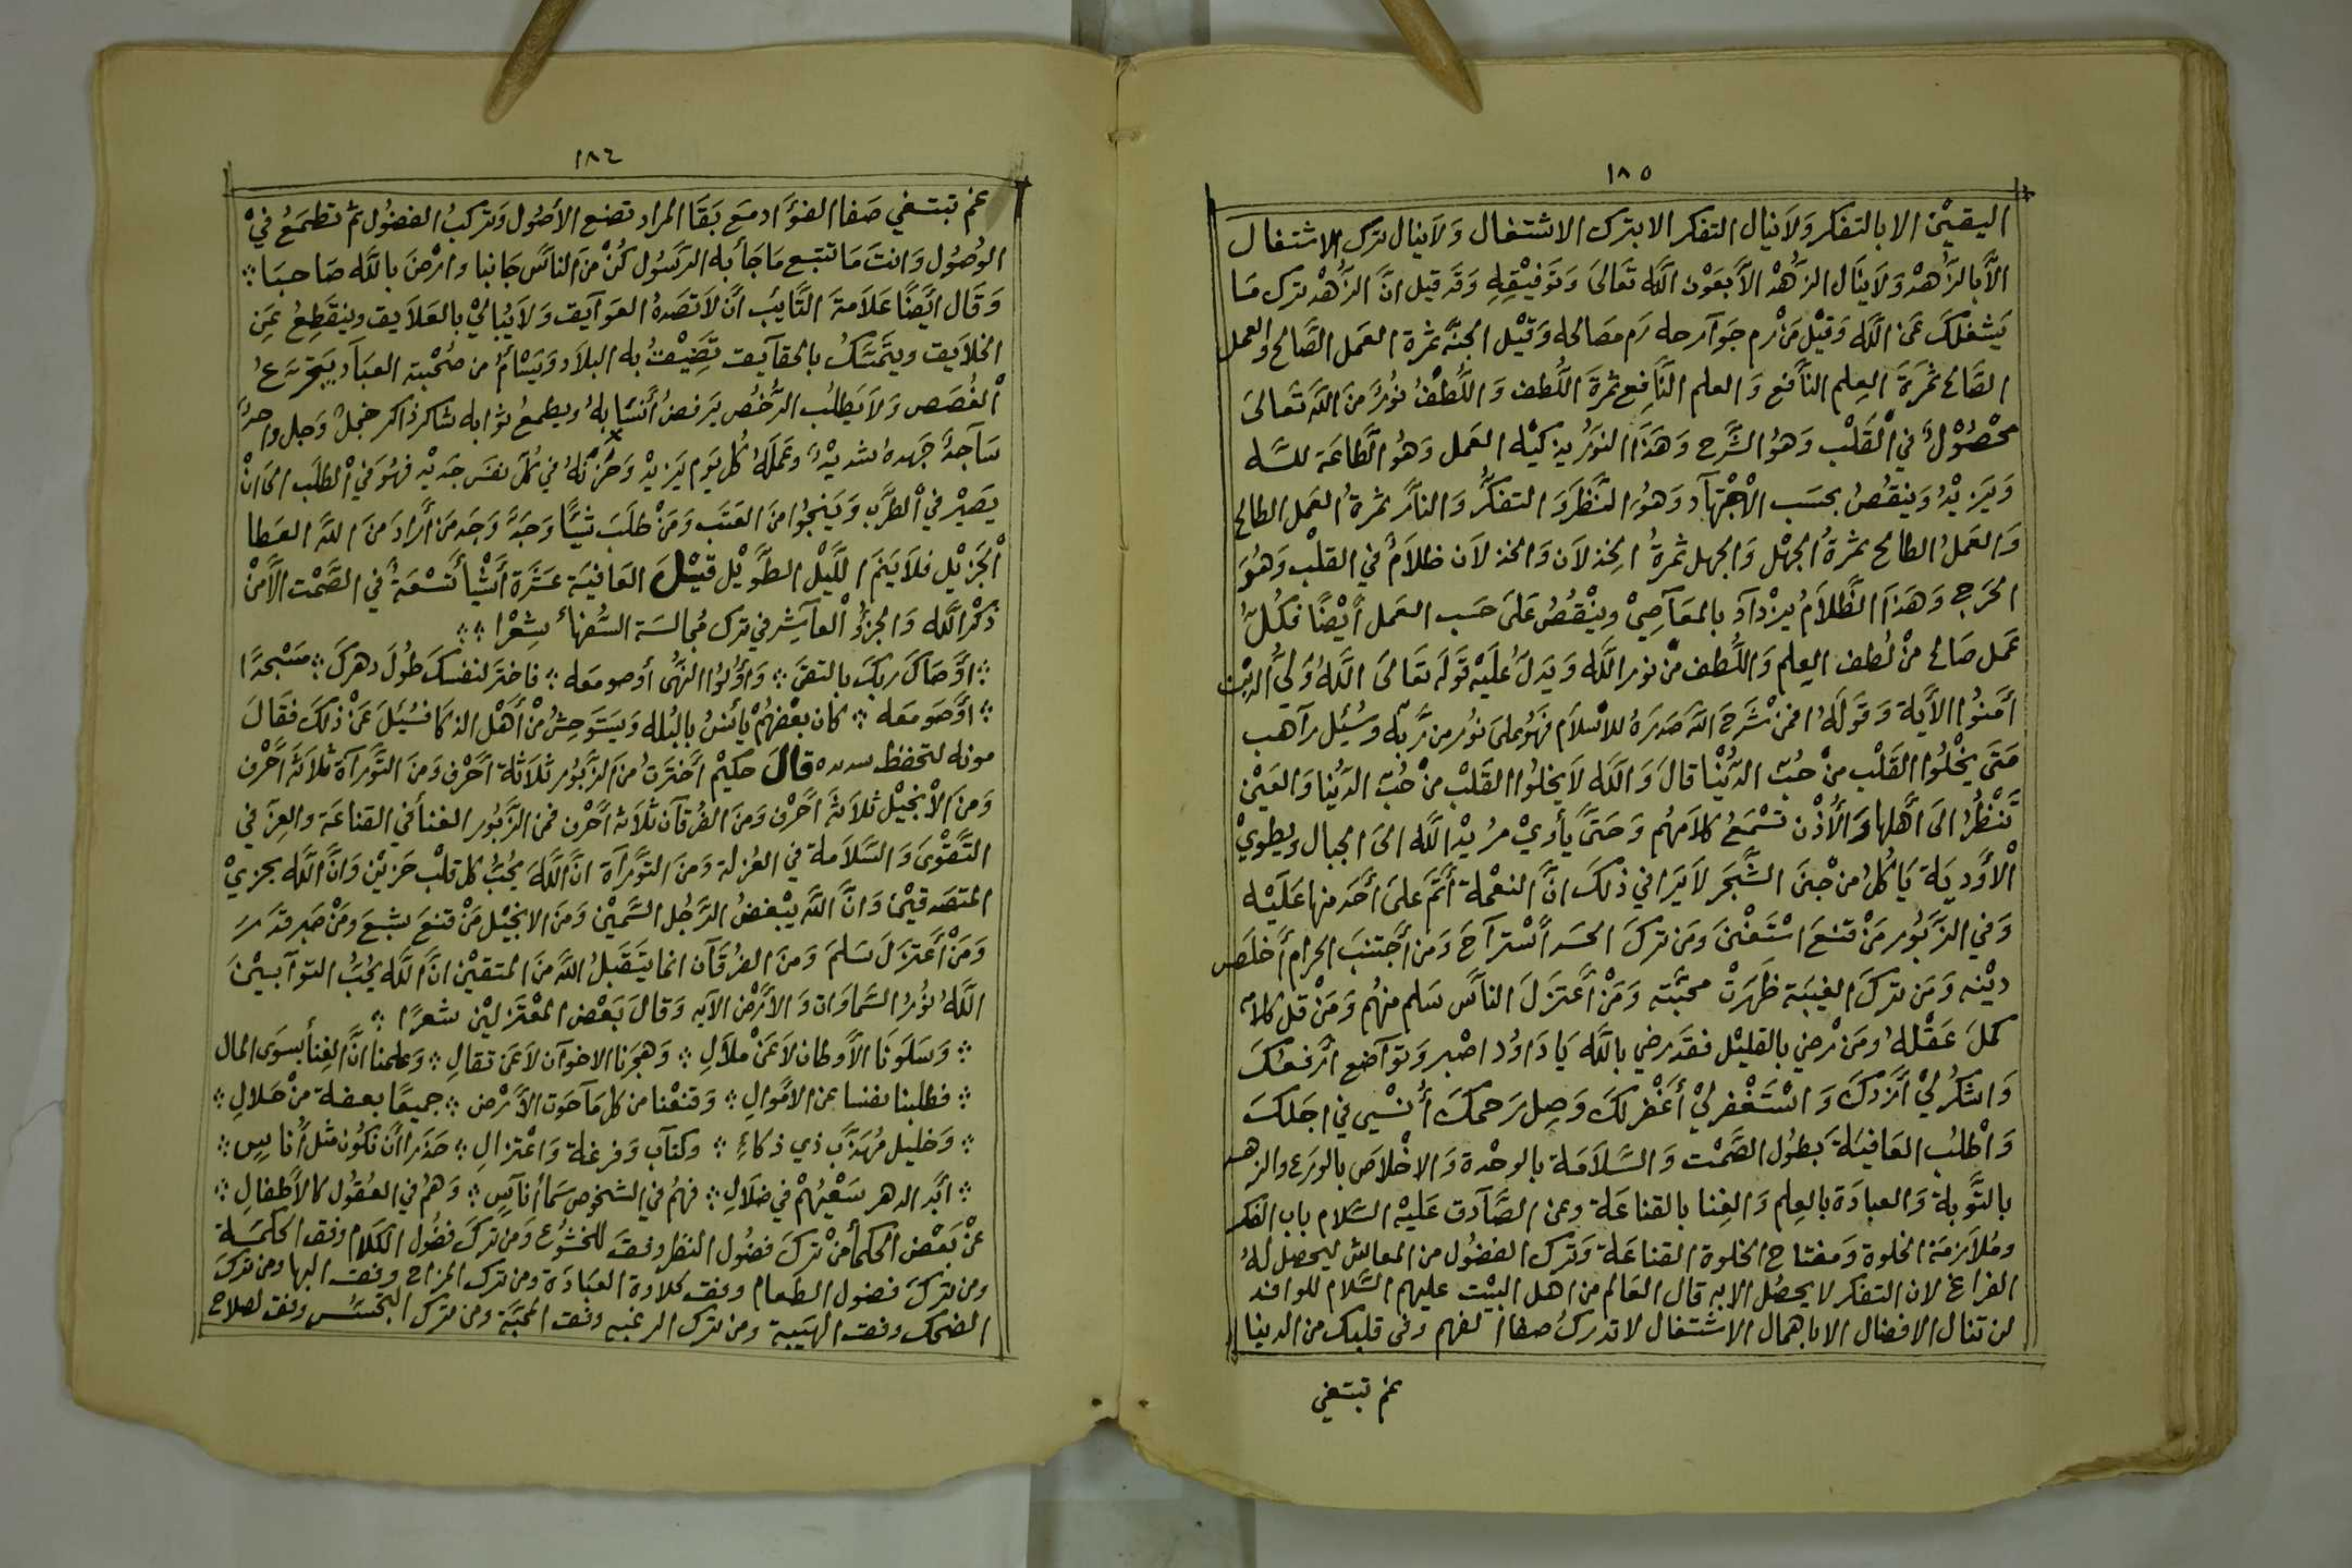 ١٨٥
اليقين الا بالتفكر ولا ينال التفكر الا بترك الاشتغال ولا ينال ترك الاشتغال
الا بالزهد ولا ينال الزهد الا بعون الله تعالى وتوفيقه وقد قيل ان الزهد ترك ما
يشغلك عن الله وقيل من رم جوآرحه رم مصالحه وقيل الجنة ثمرة العمل الصالح والعمل
الصالح ثمرة العلم النافع والعلم النافع ثمرة اللطف واللطف نور من الله تعالى
محصول في القلب وهو الشرح وهذا النور يزكيه العمل وهو الطاعة لله
ويزيد وينقص بحسب الاجتهآد وهو النظر و التفكر والنار ثمرة العمل الطالح
والعمل الطالح ثمرة الجهل والجهل ثمرة الخذلان والخذلان ظلام في القلب وهو
الحرج وهذا الظلام يزدآد بالمعآصي وينقص على حسب العمل أيضا فكل
عمل صالح من لطف العلم واللطف من نور الله ويدل عليه قوله تعالى الله ولي الذين
أمنوا الأية وقوله افمن شرح الله صدره للاسلام فهو على نور من ربه وسئل رآهب
متى يخلوا القلب من حب الدنيا قال والله لا يخلوا القلب من حب الدنيا والعين
تنظر الى أهلها والأذن تسمع كلامهم وحتى يأوي مريد الله الى الجبال ويطوي
الأودية يأكل من جنى الشجر لا يرا في ذلك ان النعمة أتم على أحد منها عليه
وفي الزبور من قنع استغنى ومن ترك الحسد أسترآح ومن أجتنب الحرام أخلص
دينه ومن ترك الغيبة ظهرت محبته ومن أعتزل الناس سلم منهم ومن قل كلامه
كمل عقله ومن رضي بالقليل فقد رضي بالله يا داود اصبر وتوآضع أرفعك
واشكر لي أزدك واستغفر لي أغفر لك وصل رحمك أنسي في اجلك
واطلب العافية بطول الصمت والسلامة بالوحدة والاخلاص بالورع والزهد
بالتوبة والعبادة بالعلم والغنا بالقناعة وعن الصآدق عليه السلام باب الفكر
وملازمة الخلوة ومفتاح الخلوة القناعة وترك الفضول من المعاش ليحصل له
الفراغ لان التفكر لا يحصل الا به قال العالم من اهل البيت عليهم السلام للوافد
لن تنال الافضال الا باهمال الاشتغال لا تدرك صفا الفهم وفي قلبك من الدنيا
عم تبتغي
١٨٦
عم تبتغي صفا الفؤاد مع بقا المراد تضع الاصول وتركب الفضول ثم تطمع في
الوصول وانت ما تتبع ما جأ به الرسول كن من الناس جانبا وارض بالله صاحبا
وقال ايضا علامة التايب أن لا تصده العوآيق ولا يبالي بالعلايق وينقطع عن
الخلايق ويتمسك بالحقآيق تضيق به البلاد ويسأم من صحبة العبآد يتجرع
الغصص ولا يطلب الرخص يرفض أنسابه ويطمع ثوابه شاكر ذاكر خجل وجل واحد
سآجد جهده شديد وعمله كل يوم يزيد وحزنه في كل نفس جديد فهو في الطلب الى ان
يصير في الطرب وينجوا من العتب ومن طلب شيئا وجد وجد من أراد من الله العطا
الجزيل فلا ينم الليل الطويل قيل العافية عشرة أشيأ تسعة في الصمت الا من
ذكر الله والجزؤ العآشر في ترك مجالسة السفهاء شعرا
اوصاك ربك بالتقى وأولوا النهى أوصو معه فاختر لنفسك طول دهرك مسجدا
او صومعه كان بعضهم يأنس بالبله ويستوحش من أهل الذكا فسئل عن ذلك فقال
قال حكيم أخترت من الزبور ثلاثة أحرف ومن التورآة ثلاثة أحرف
ومن الانجيل ثلاثة أحرف ومن الفرقآن ثلاثه أحرف فمن الزبور الغنأ في القناعة والعز في
التقوى والسلامة في العزلة ومن التورآة ان الله يحب كل قلب حزين وان الله يجزي
المتصدقين وان الله يبغض الرجل السمين ومن الانجيل من قنع شبع ومن صبر قدر
ومن أعتزل سلم ومن الفرقآن انما يتقبل الله من المتقين ان الله يحب التوآبين
الله نور السماوات والأرض الآيه وقال بعض المعتزلين شعرا
وسلونا الأوطان لا عن ملال وهجرنا الاخوآن لا عن تقال وعلمنا ان الغنأ بسوى المال
فطلبنا نفسا عن الاموال وقنعنا من كل مآ حوت الأرض جميعا بعفة من حلال
وخليل مهذب ذي ذكاء وكتآب وفرغة واعتزال حذرا أن نكون مثل أناس
أبد الدهر سعيهم في ضلال فهم في الشخوص سمأ أنآس وهم في العقول كالأطفال
عن بعض الحكمأ من ترك فضول النظر وفق للخشوع ومن ترك فضول الكلام وفق الحكمة
ومن ترك فضول الطعام وفق لحلاوة العبادة ومن ترك المزاح وفق البها ومن ترك
الضحك وفق الهيبة ومن ترك الرغبه وفق المحبة ومن ترك التجسس وفق لصلاح